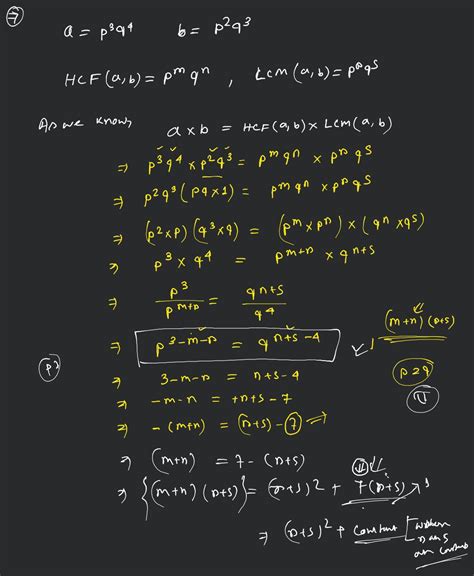 7
a = p³q⁴    b = p²q³
HCF(a,b) = pᵐqⁿ , LCM(a,b) = pʳqˢ
As we know,
a×b = HCF(a,b) × LCM(a,b)
⇒ p³q⁴ × p²q³ = pᵐqⁿ × pʳqˢ
⇒ p²q³(pq×1) = pᵐqⁿ × pʳqˢ
⇒ (p²×p)(q³×q) = (pᵐ×pʳ)×(qⁿ×qˢ)
⇒ p³ × q⁴ = pᵐ⁺ʳ × qⁿ⁺ˢ
⇒ p³/pᵐ⁺ʳ = qⁿ⁺ˢ/q⁴
(m+n)(r+s)
⇒ p³⁻ᵐ⁻ʳ = qⁿ⁺ˢ⁻⁴
⇒ 3-m-r = n+s-4
⇒ -m-n = +r+s-7
⇒ -(m+n) = (r+s)-7
⇒ (m+n) = 7-(r+s)
⇒ {(m+n)(r+s)} = (r+s)2 + 7(r+s)
⇒ (r+s)² + constant